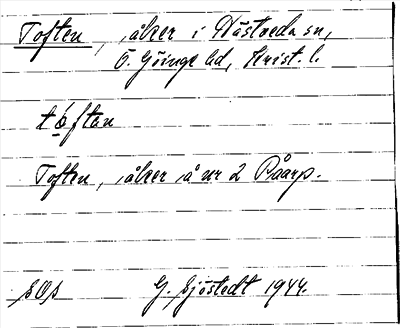 Toften, åker i Nästveda sn,
Ö. Göinge hd, Krist. l.
tɷftan
Toften, åker å nr 2 Råarp.
SOS G. Sjöstedt 1944.